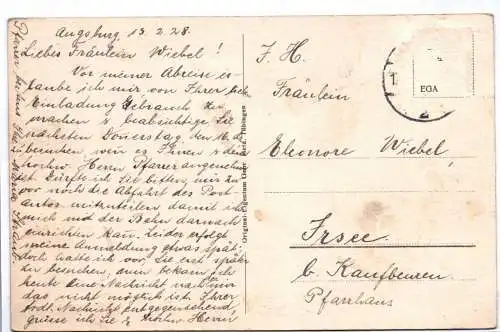 Augsburg 13.2.28.
Liebes Fräulein Wiebel!
Vor meiner Abreise er-
laube ich mir von Ihrer lieben
Einladung Gebrauch zu
machen & beabsichtige Sie
nächsten Donerstag den 16. ds
zu besuchen, wen es Ihnen & dem
hochw. Herrn Pfarrer angenehm
ist. Dürfte ich Sie bitten, mir zu-
vor noch die Abfahrt des Post-
autos mitzuteilen damit ich
mich mit der Bahn darnach
einrichten kan. Leider erfolgt
meine Anmeldung etwas spät;
doch hatte ich vor Sie erst später
zu besuchen, nun bekam ich
heute eine Nachricht nach
das nicht möglich ist. Ihrer
Nachricht entgegensehend
grüsse ich Sie & hochw. Herrn
Pfarrer
Original-Eigentum
F. H.
Fräulein
Eleonore Wiebel,
Irsee
b. Kaufbeuren
Pfarrhaus
EOA
1
2